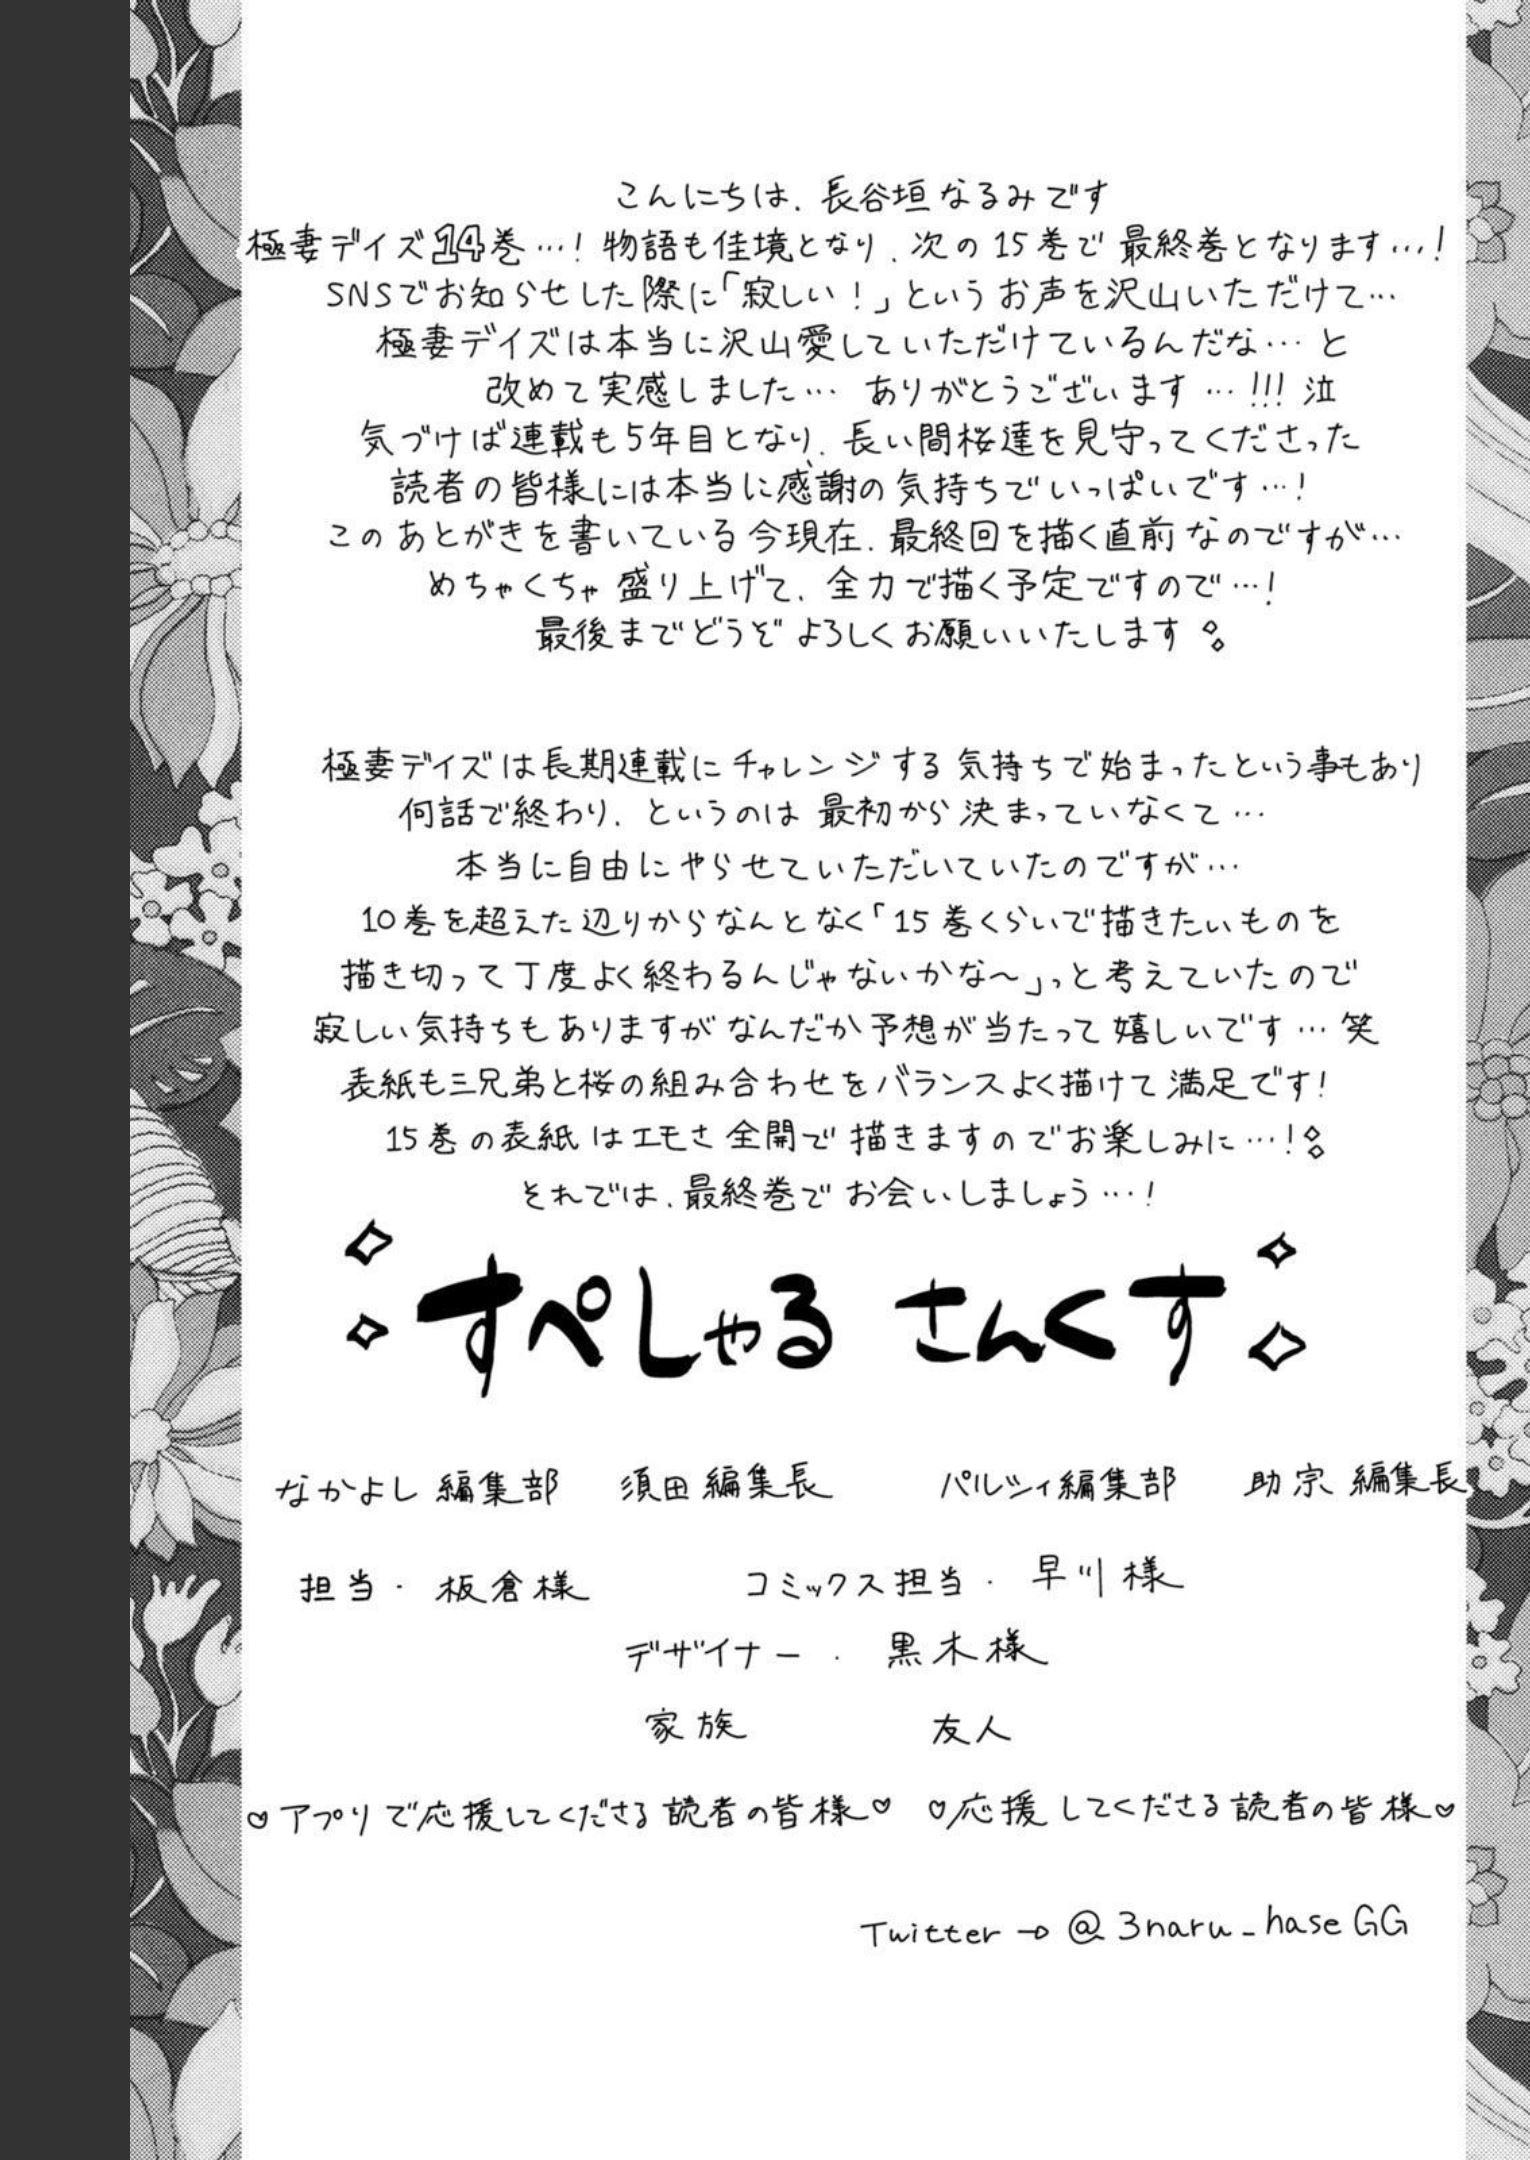 こんにちは、長谷垣なるみです
極妻デイズ14巻…！物語も佳境となり、次の15巻で最終巻となります…！
SNSでお知らせした際に「寂しい！」というお声を沢山いただけて…
極妻デイズは本当に沢山愛していただけているんだな…と
改めて実感しました… ありがとうございます…!!! 泣
気づけば連載も5年目となり、長い間桜達を見守ってくださった
読者の皆様には本当に感謝の気持ちでいっぱいです…！
このあとがきを書いている今現在、最終回を描く直前なのですが…
めちゃくちゃ盛り上げて、全力で描く予定ですので…！
最後までどうぞよろしくお願いいたします
極妻デイズは長期連載にチャレンジする気持ちで始まったという事もあり
何話で終わり、というのは最初から決まっていなくて…
本当に自由にやらせていただいていたのですが…
10巻を超えた辺りからなんとなく「15巻くらいで描きたいものを
描き切って丁度よく終わるんじゃないかな〜」っと考えていたので
寂しい気持ちもありますがなんだか予想が当たって嬉しいです…笑
表紙も三兄弟と桜の組み合わせをバランスよく描けて満足です！
15巻の表紙はエモさ全開で描きますのでお楽しみに…！
それでは、最終巻でお会いしましょう…！
すぺしゃる さんくす
なかよし編集部 須田編集長 パルシィ編集部 助宗編集長
担当・板倉様 コミックス担当・早川様
デザイナー・黒木様
家族 友人
♡アプリで応援してくださる読者の皆様♡ ♡応援してくださる読者の皆様♡
Twitter→@3naru_haseGG